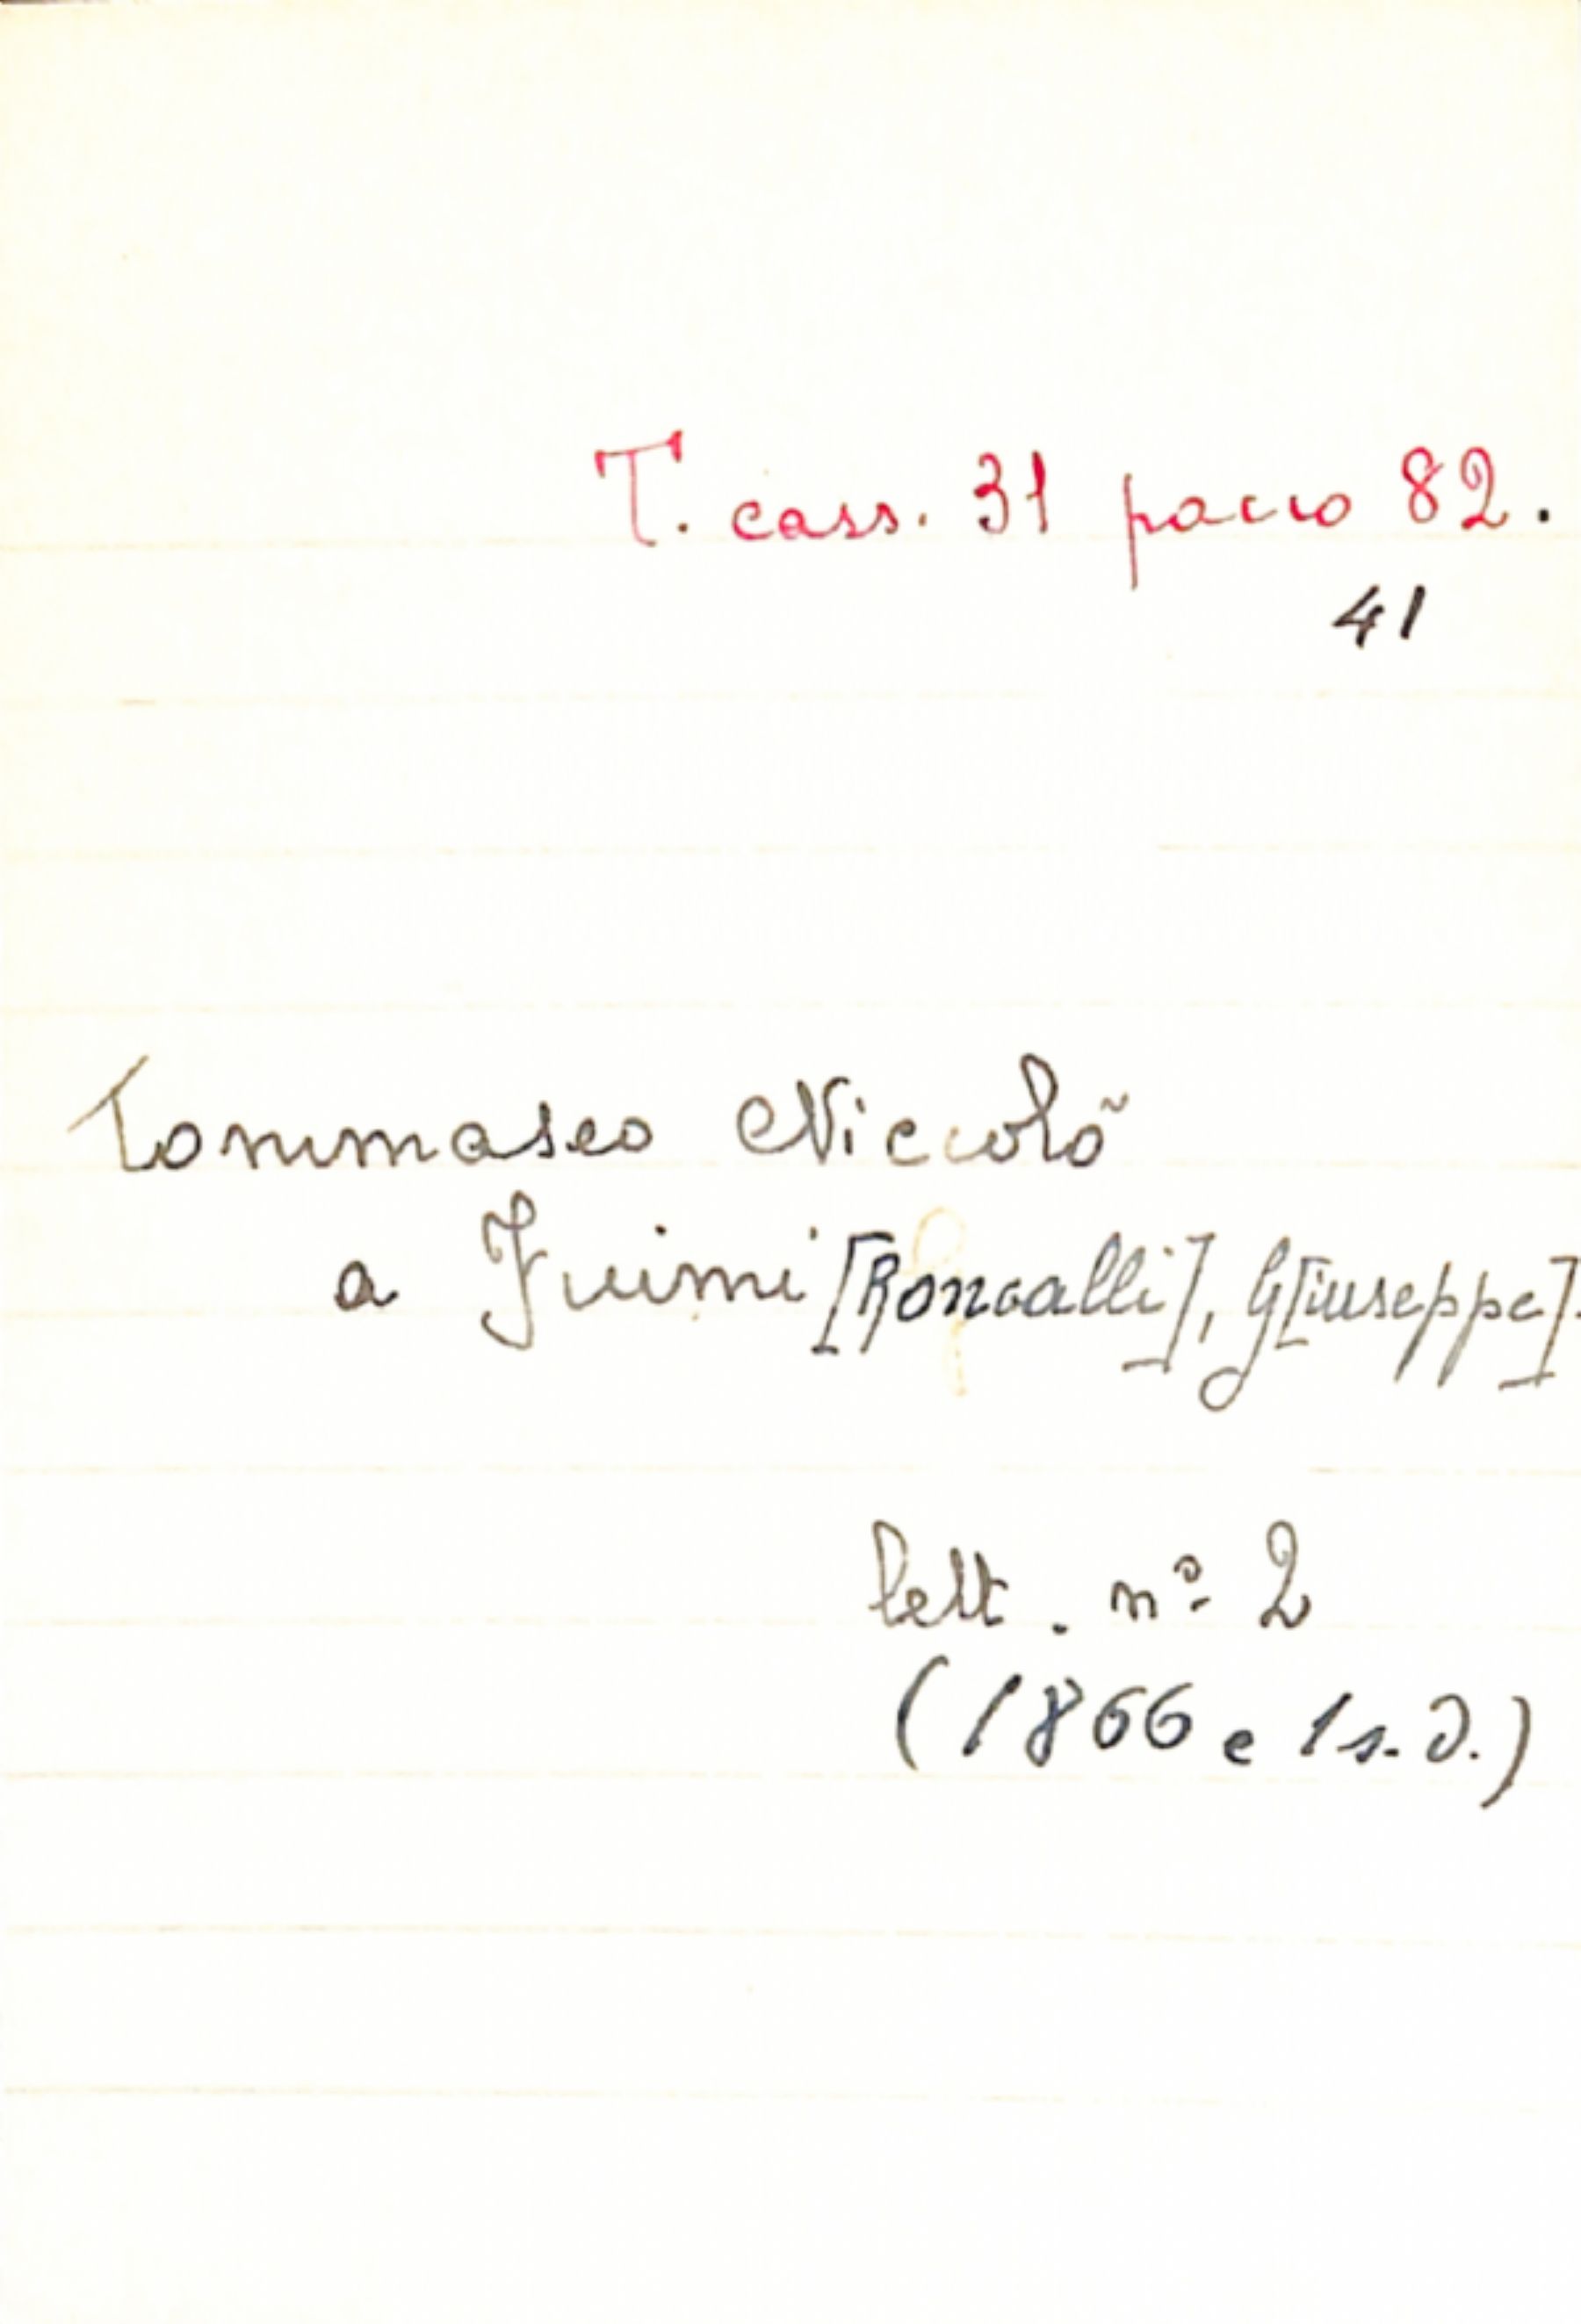 T. cass. 31 pacco 82.
41
Tommaseo Niccolò
a [Roncalli], G[iuseppe].
lett. nº 2
(1866 e 1 s.d.)